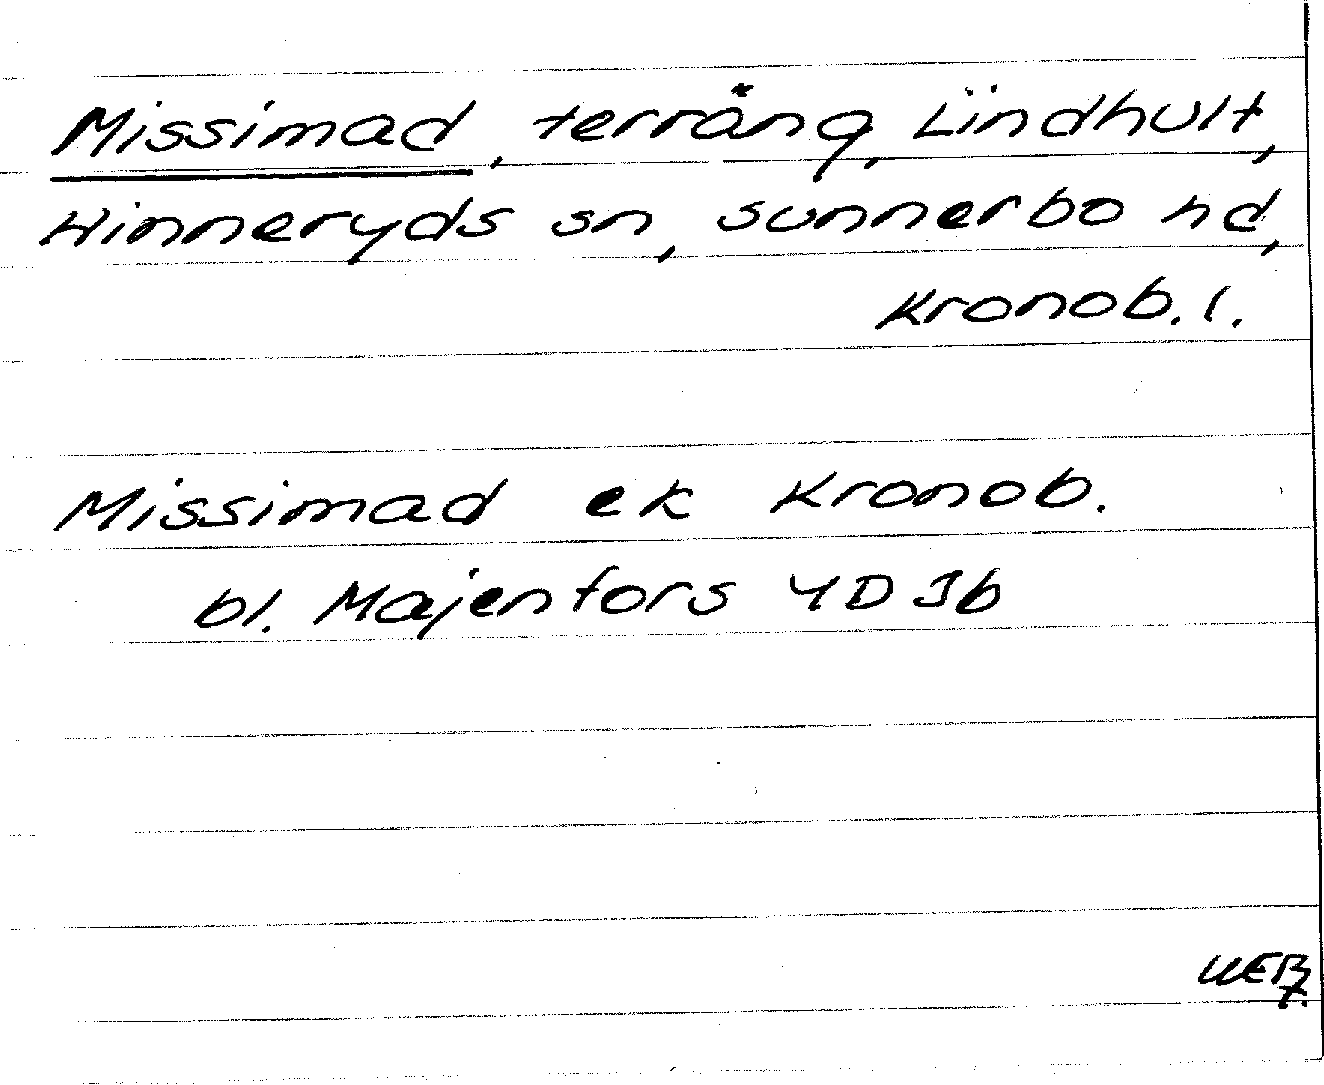 Missimad, terräng, Lindhult,
Hinneryds sn, Sunnerbo hd,
Kronob. l.
Missimad ek Kronob.
bl. Majenfors 4D 3b